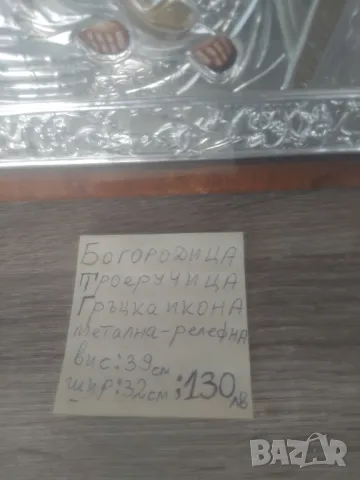 БОГОРОДИЦА
ТРОеРУЧИЦА
ГРЪЦКА ИКОНА
метална-релефна
вис:39см
шир:32см;130лв
BAZAR